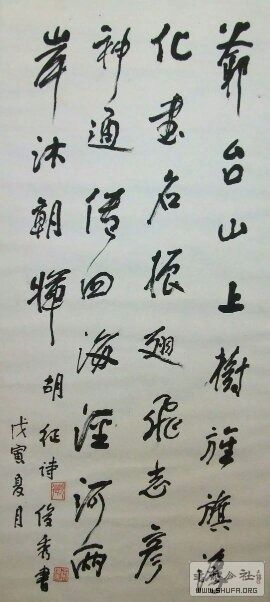 爺台山上樹旌旗淳
化畫名振翅飛志彥
神通傳四海涇河兩
岸沐朝暉 胡征詩 俊秀書
戊寅夏月
WWW.SHUFA.ORG